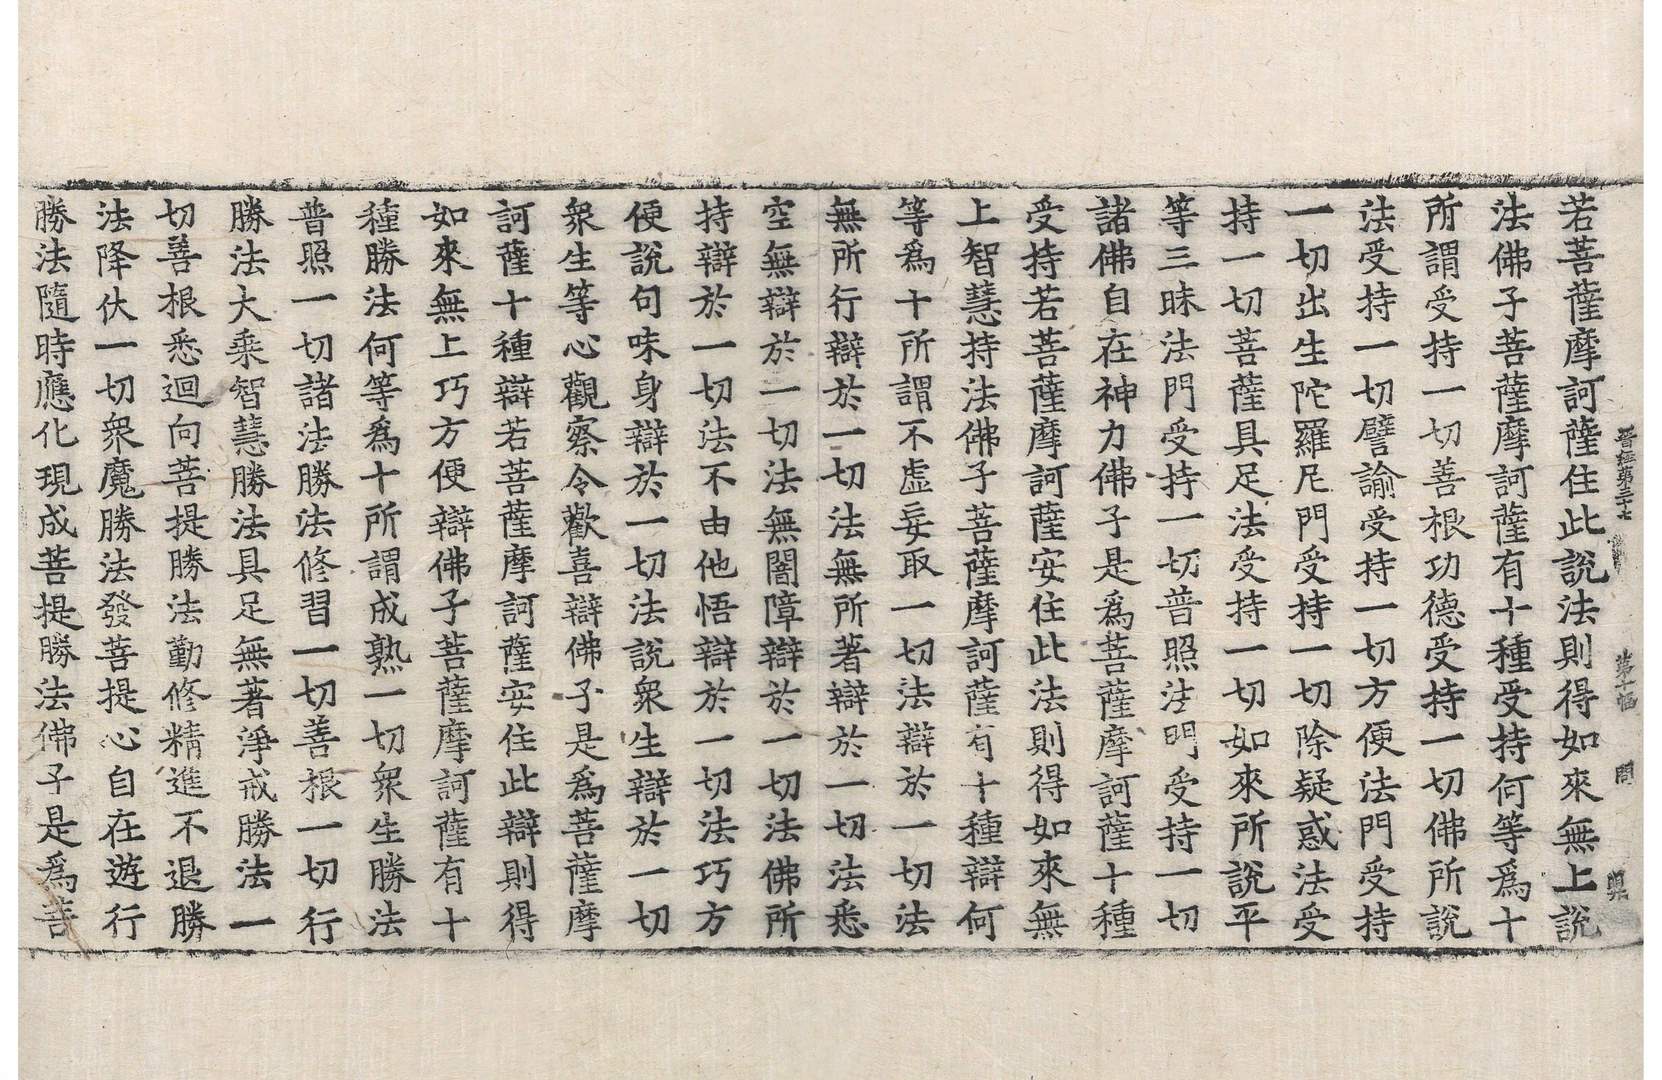 晉經第三十七 第十幅 問
若菩薩摩訶薩住此說法則得如來無上說
法佛子菩薩摩訶薩有十種受持何等爲十
所謂受持一切善根功德受持一切佛所說
法受持一切譬諭受持一切方便法門受持
一切出生陀羅尼門受持一切除疑惑法受
持一切菩薩具足法受持一切如來所說平
等三昧法門受持一切普照法門受持一切
諸佛自在神力佛子是爲菩薩摩訶薩十種
受持若菩薩摩訶薩安住此法則得如來無
上智慧持法佛子菩薩摩訶薩有十種辯何
等爲十所謂不虛妄取一切法辯於一切法
無所行辯於一切法無所著辯於一切法悉
空無辯於一切法無闇障辯於一切法佛所
持辯於一切法不由他悟辯於一切法巧方
便說句味身辯於一切法說衆生辯於一切
衆生等心觀察令歡喜辯佛子是爲菩薩摩
訶薩十種辯若菩薩摩訶薩安住此辯則得
如來無上巧方便辯佛子菩薩摩訶薩有十
種勝法何等爲十所謂成熟一切衆生勝法
普照一切諸法勝法修習一切善根一切行
勝法大乘智慧勝法具足無著淨戒勝法一
切善根悉迴向菩提勝法勤修精進不退勝
法降伏一切衆魔勝法發菩提心自在遊行
勝法隨時應化現成菩提勝法佛子是爲菩